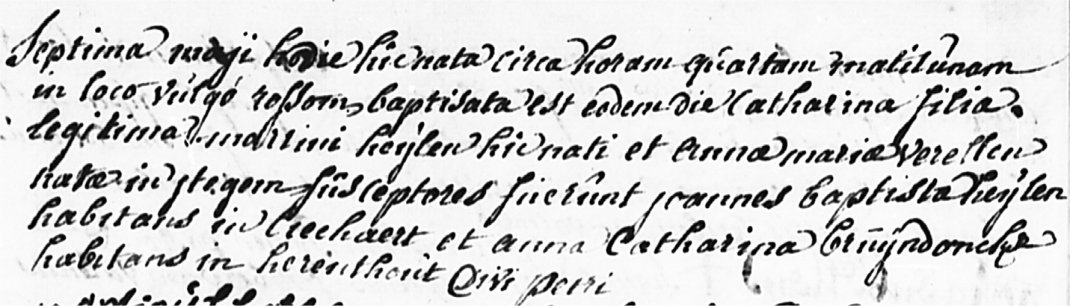 Septima maji hodie hic nata circa horam quartam matutinam
in loco vulgo rossom, baptisata est eodem die Catharina filia
legitima martini heijlen hic nati et annæ mariæ verellen
natæ in itegem susceptores fuerunt joannes baptista heijlen
habitans in Crechaert et anna Catharina bruijndonckx
habitans in herenthout